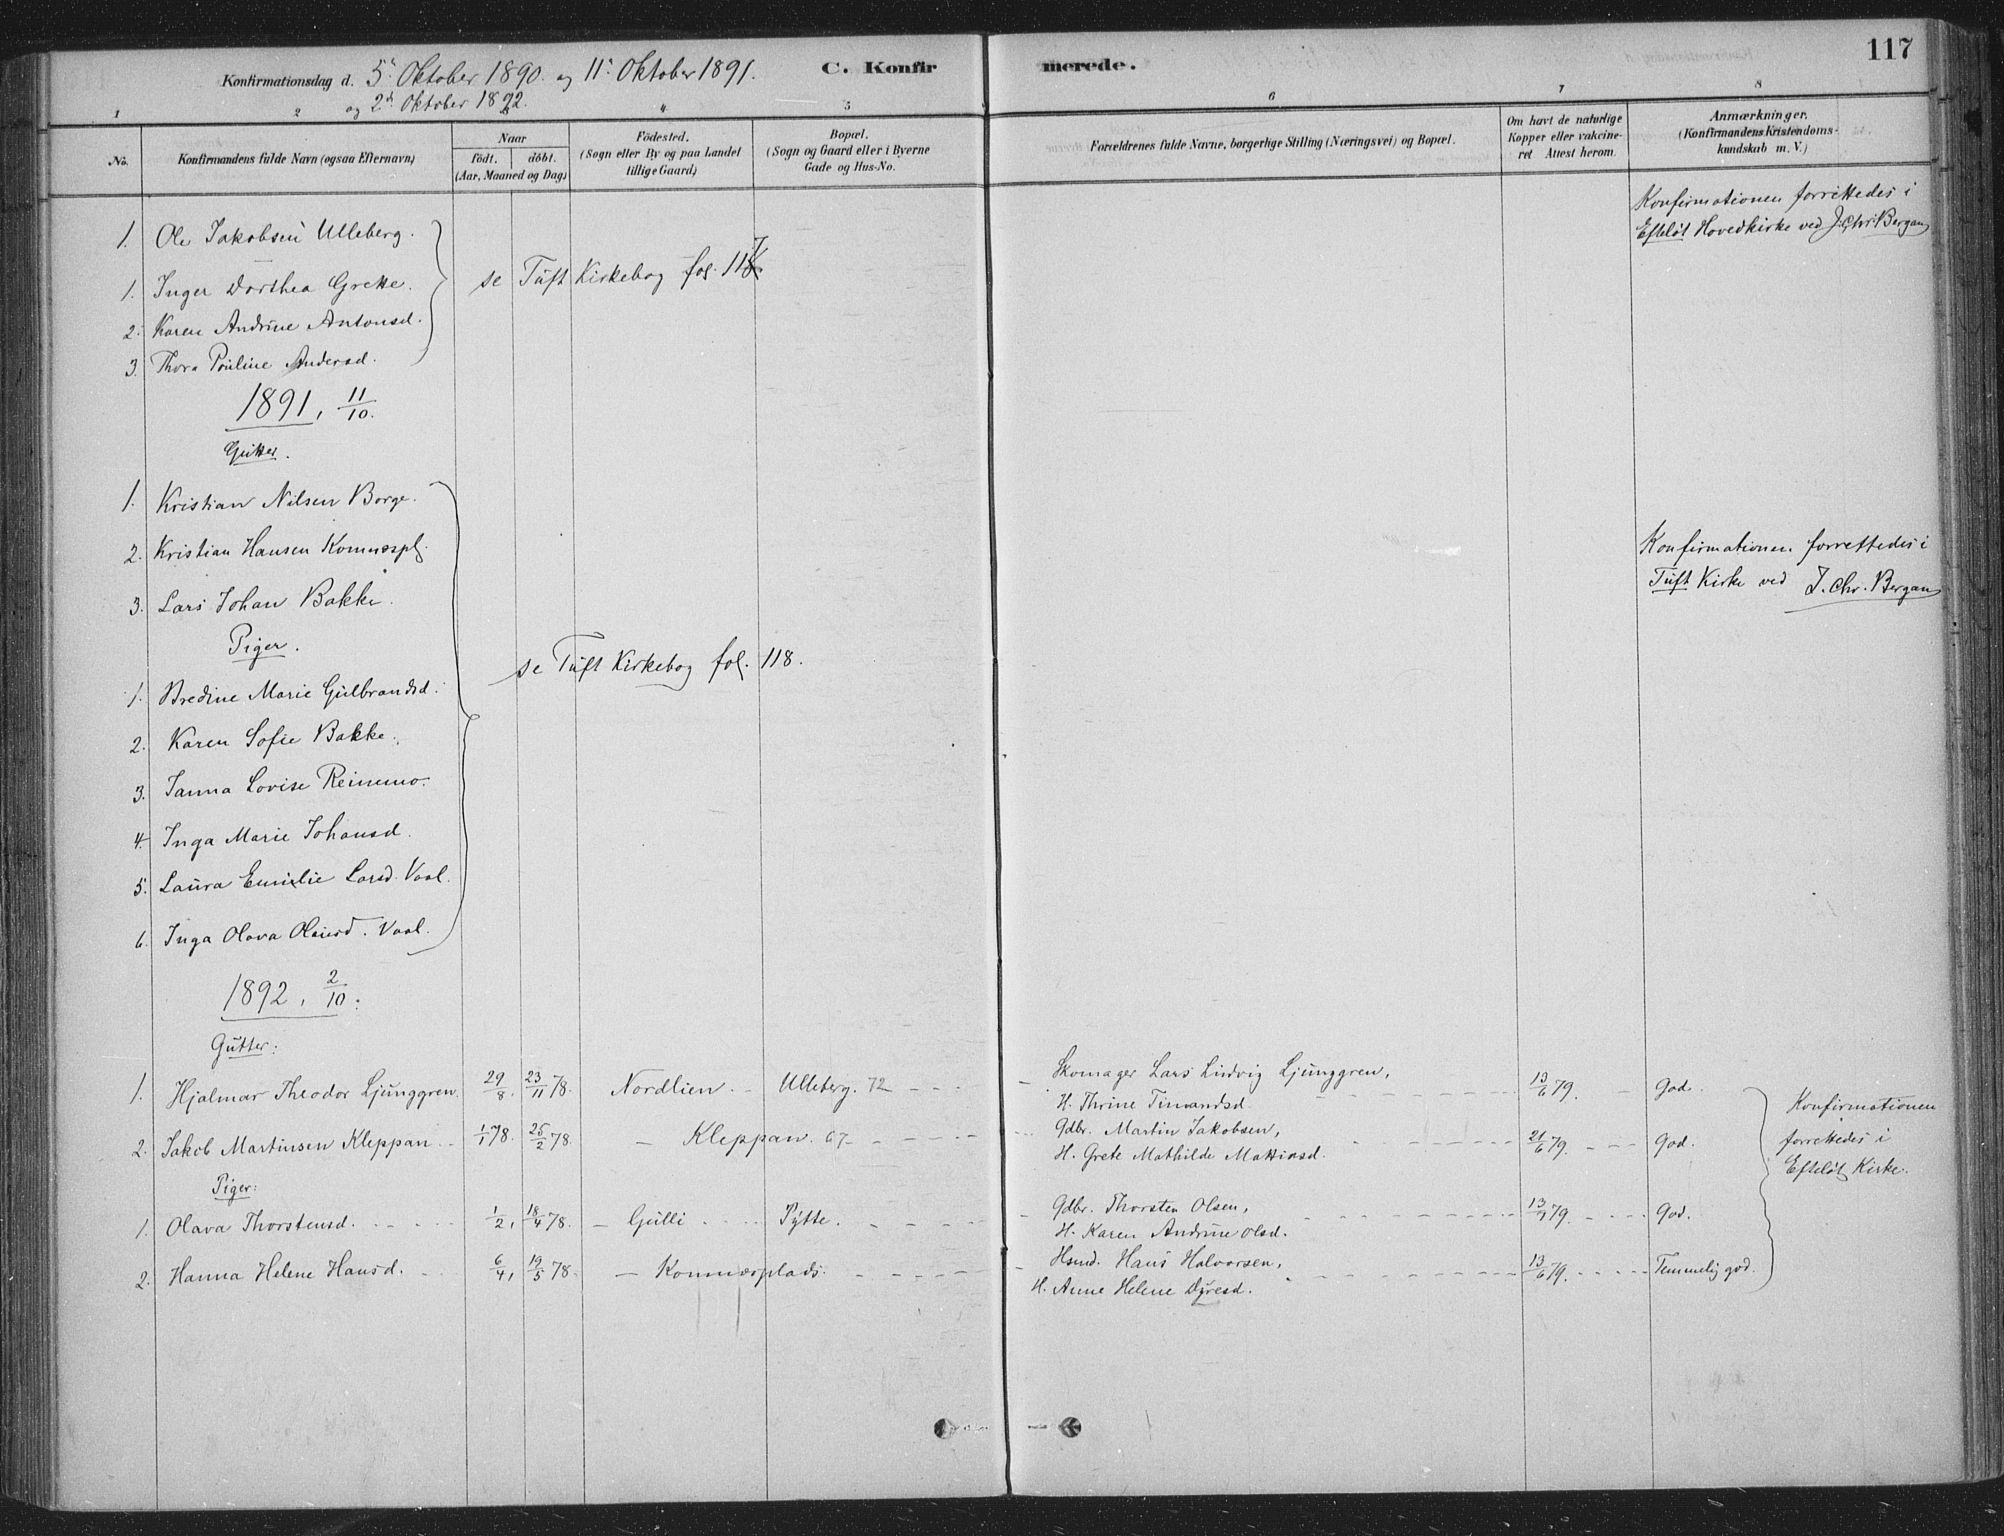 117
Konfirmationsdag d. 5te Oktober 1890. og 11te Oktober 1891. C. Konfirmerede.
og 2d Oktober 1892.
1 2 4 5 6 7 8
No. Konfirmandens fulde Navn (ogsaa Efternavn)
Naar født. døbt. (Aar, Maaned og Dag)
Födested. (Sogn eller By og paa Landet tillige Gaard)
Bopæl. (Sogn og Gaard eller i Byerne Gade og Hus-No.
Forældrenes fulde Navne, borgerlige Stilling (Næringsvei) og Bopæl.
Om havt de naturlige Kopper eller vakcineret Attest herom.
Anmærkninger. (Konfirmandens Kristendomskundskab m. V.)
Konfirmationen forrettedes i
Efteløt Hovedkirke ved J. Chr. Bergan
1. Ole Jakobsen Ulleberg.
1. Inger Dorthea Grette.
se Tuft Kirkebog fol. 117
2. Karen Andrine Antonsd.
3. Thora Pauline Andersd.
1891, 11/10.
Gutter.
1. Kristian Nilsen Borge.
2. Kristian Hansen Komnæspl.
3. Lars Johan Bakke.
Konfirmationen forrettedes i
Tuft Kirke ved J. Chr. Bergan
Piger.
se Tuft Kirkebog fol. 118.
1. Bredine Marie Gulbrandsd.
2. Karen Sofie Bakke.
3. Janna Lovise Reinemo.
4. Inga Marie Johansd.
5. Laura Emilie Larsd. Vaal.
6. Inga Olava Olausd. Vaal.
1892, 2/10.
Gutter:
1. Hjalmar Theodor Ljunggren. 29/8. 23/11 78. Nordlien Ulleberg. 72 Skomager Lars Ludvig Ljunggren, 13/6 79. God.
H. Thrine Timandsd.
2. Jakob Martinsen Kleppan 1/1 78. 25/2 78. Kleppan. 67 Gdbr. Martin Jakobsen, 21/6 79. God.
H. Grete Mathilde Mattiasd.
Konfirmationen
forrettedes i
Efteløt Kirke.
Piger:
1. Olava Thorstensd. 1/2, 18/4 78. Gulli Pytte. Gdbr. Thorsten Olsen, 13/7 79. God.
H. Karen Andrine Olsd.
2. Hanna Helene Hansd. 6/4, 19/5 78. Komnæsplads. Hsmd. Hans Halvorsen, 13/6 79. Temmelig god.
H. Anne Helene Dyresd.